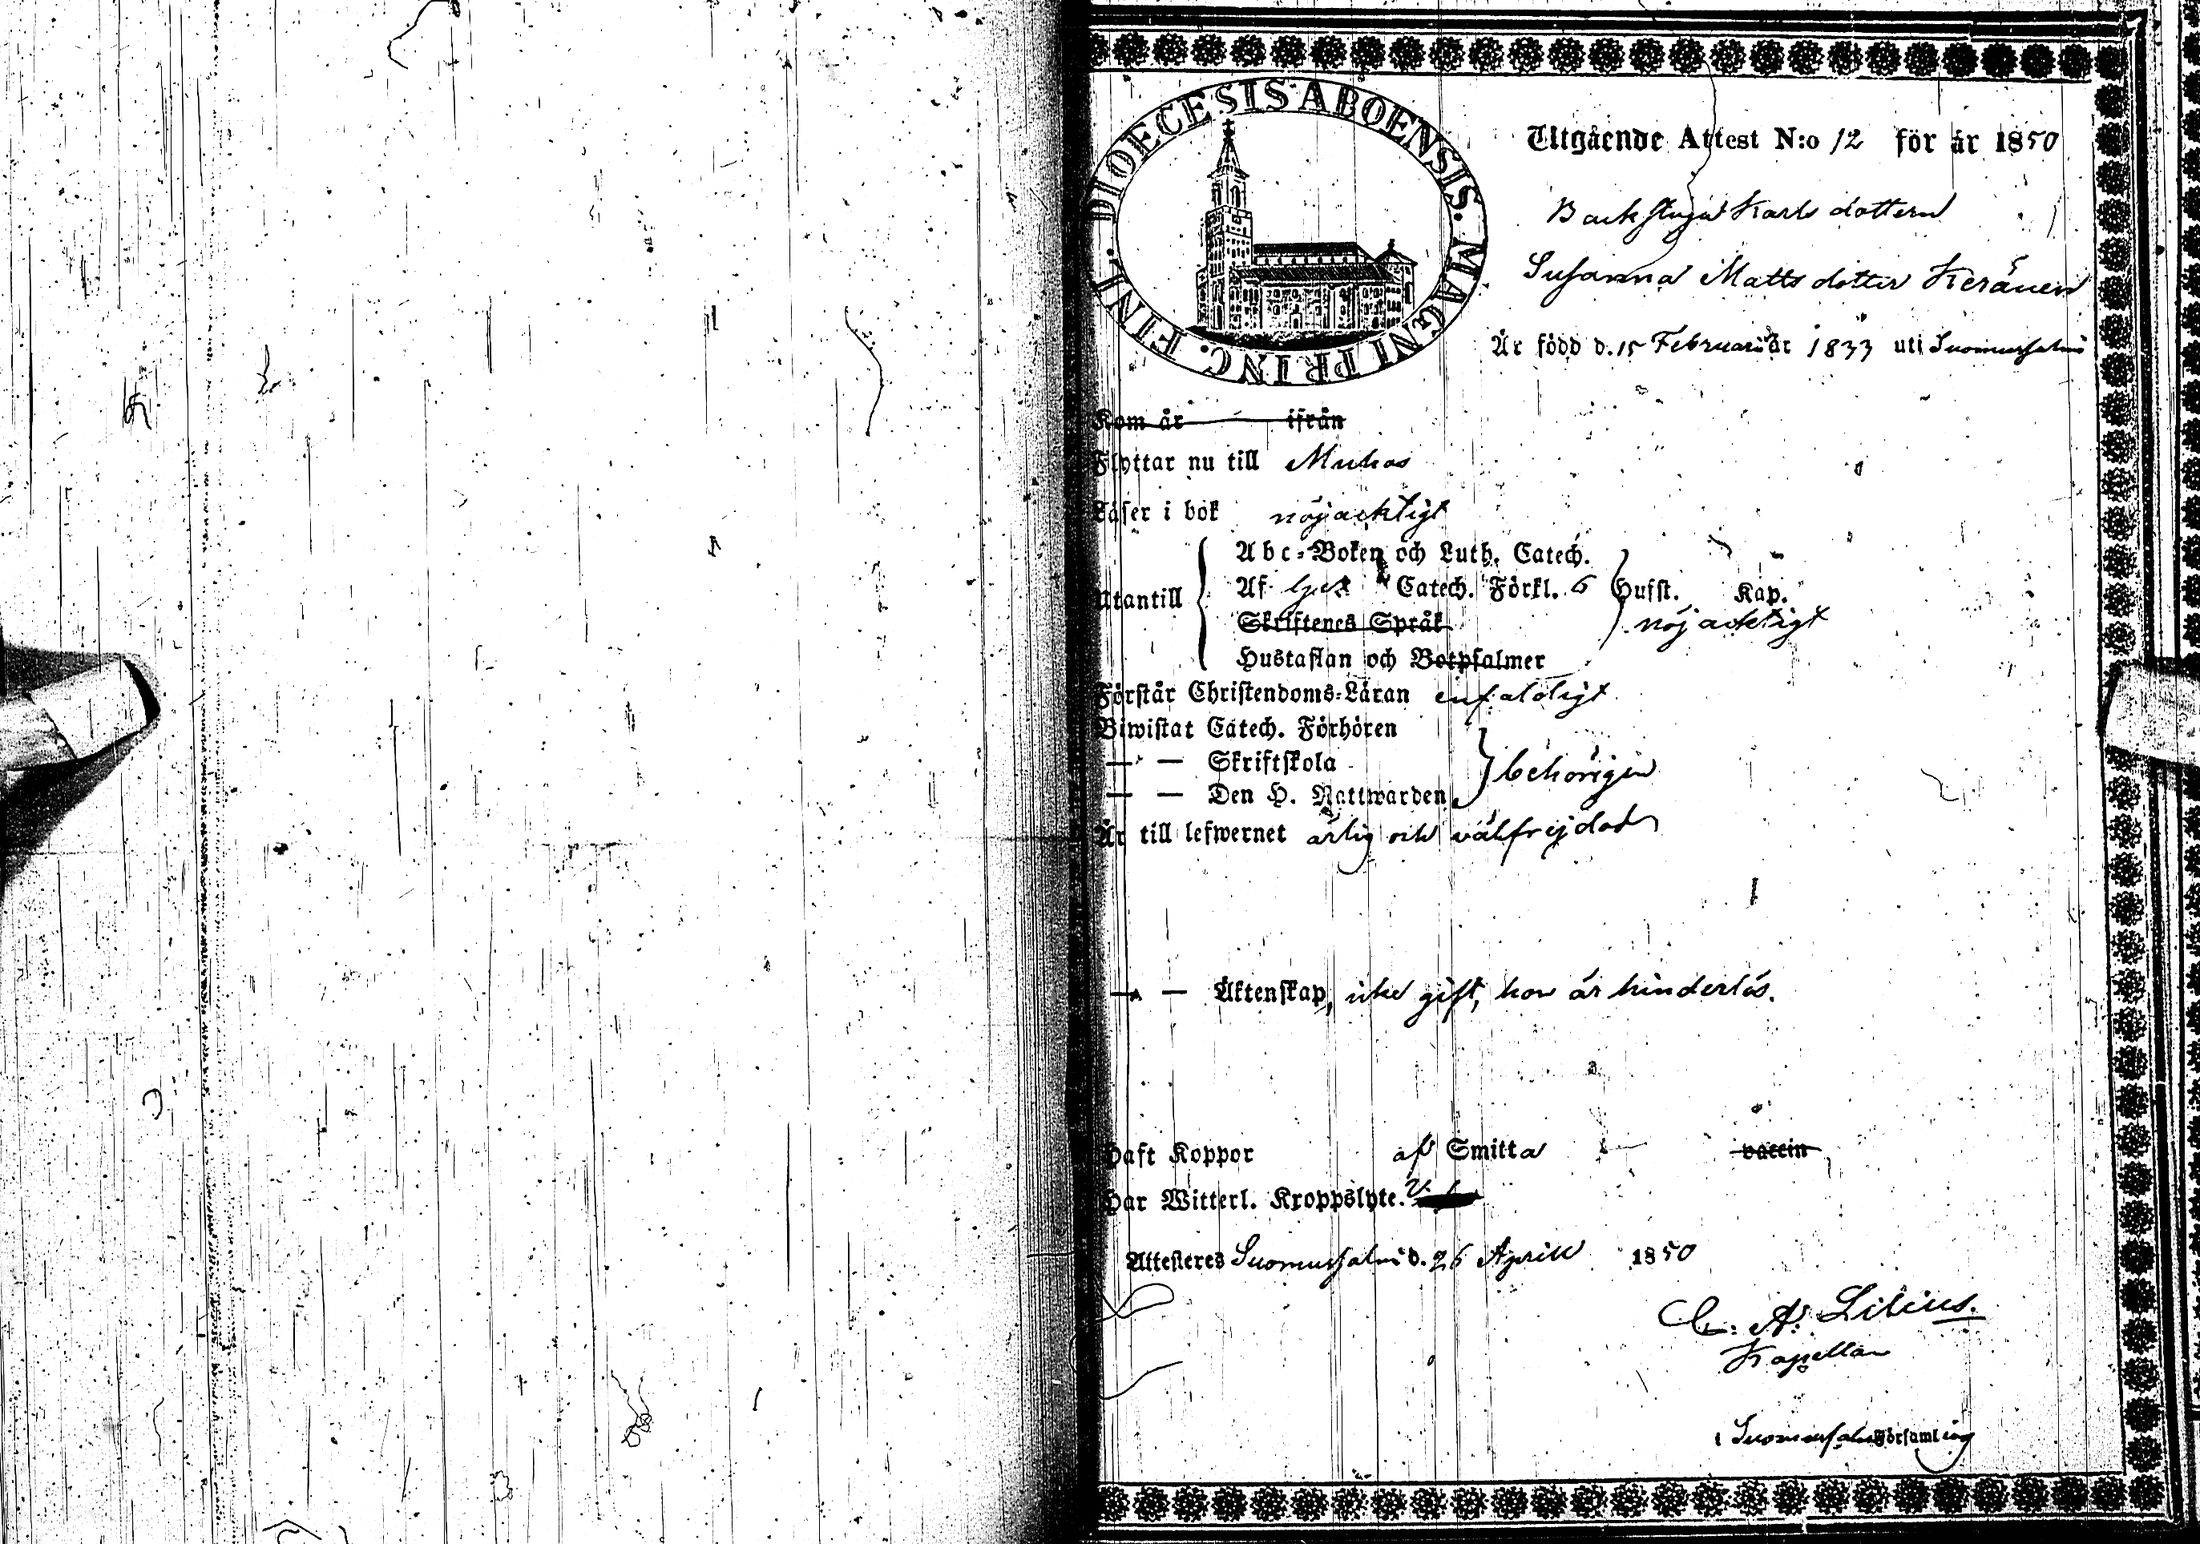 DIOECESIS ABOENSIS. MAGNI PRINC. FINL.
Utgående Attest N:o 12 för år 1850
Backstugu Karls dottern
Susanna Matts dotter Keränen
Är född d. 15 Februarii år 1833 uti Suomussalmi
Kom år ifrån
Flyttar nu till Muhos
Läser i bok nöjacktigt
Abc-Boken och Luth. Catech.
Utantill Af Catech. Förkl. 6 Hufst. Kap.
Skriftenes Språk nöjacktigt
Hustaflan och Botpsalmer
Förstår Christendoms-Läran enfaldigt
Biwistat Catech. Förhören
— — Skriftskola behörigen
— — Den H. Nattwarden
Är till lefwernet ärlig och välfrejdad
— — Äktenskap, icke gift, hon är hinderlös.
Haft Koppor af Smitta vaccin
Har Witterl. Kroppslyte.
Attesteres Suomussalmi d. 26 Aprill 1850
C. A. Lilius.
Kapellan
i Suomussalmi Församling